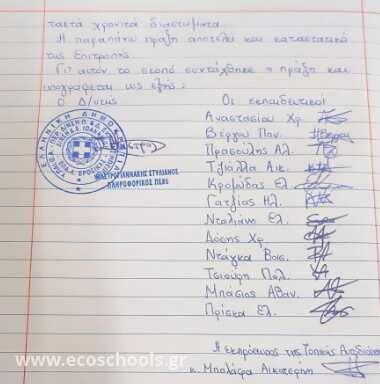 τακτά χρονικά διαστήματα.
Η παραπάνω πράξη αποτελεί και καταστατικό
της Επιτροπής.
Γι' αυτόν το σκοπό συντάχθηκε η πράξη και
υπογράφεται ως εξής:
Ο Δ/ντής
Οι εκπαιδευτικοί
Αναστασίου Χρ.
Βέργου Παν.
Πρασούλης Αλ.
Τζιάλλα Αικ.
Κραβίδας Ελ.
Γατζίας Ηλ.
Νταλιάνη Ελ.
Δόσης Χρ.
Ντάγκα Βασ.
Τσιούρη Πολ.
Μπάσιος Αθαν.
Πρίσκα Ελ.
ΕΛΛΗΝΙΚΗ ΔΗΜΟΚΡΑΤΙΑ
ΜΑΣΤΡΟΓΙΑΝΝΑΚΗΣ ΣΤΥΛΙΑΝΟΣ
ΠΛΗΡΟΦΟΡΙΚΟΣ ΠΕ86
Η εκπρόσωπος της Τοπικής
κ. Μπαλάφα Αικατερίνη
www.ecoschools.gr